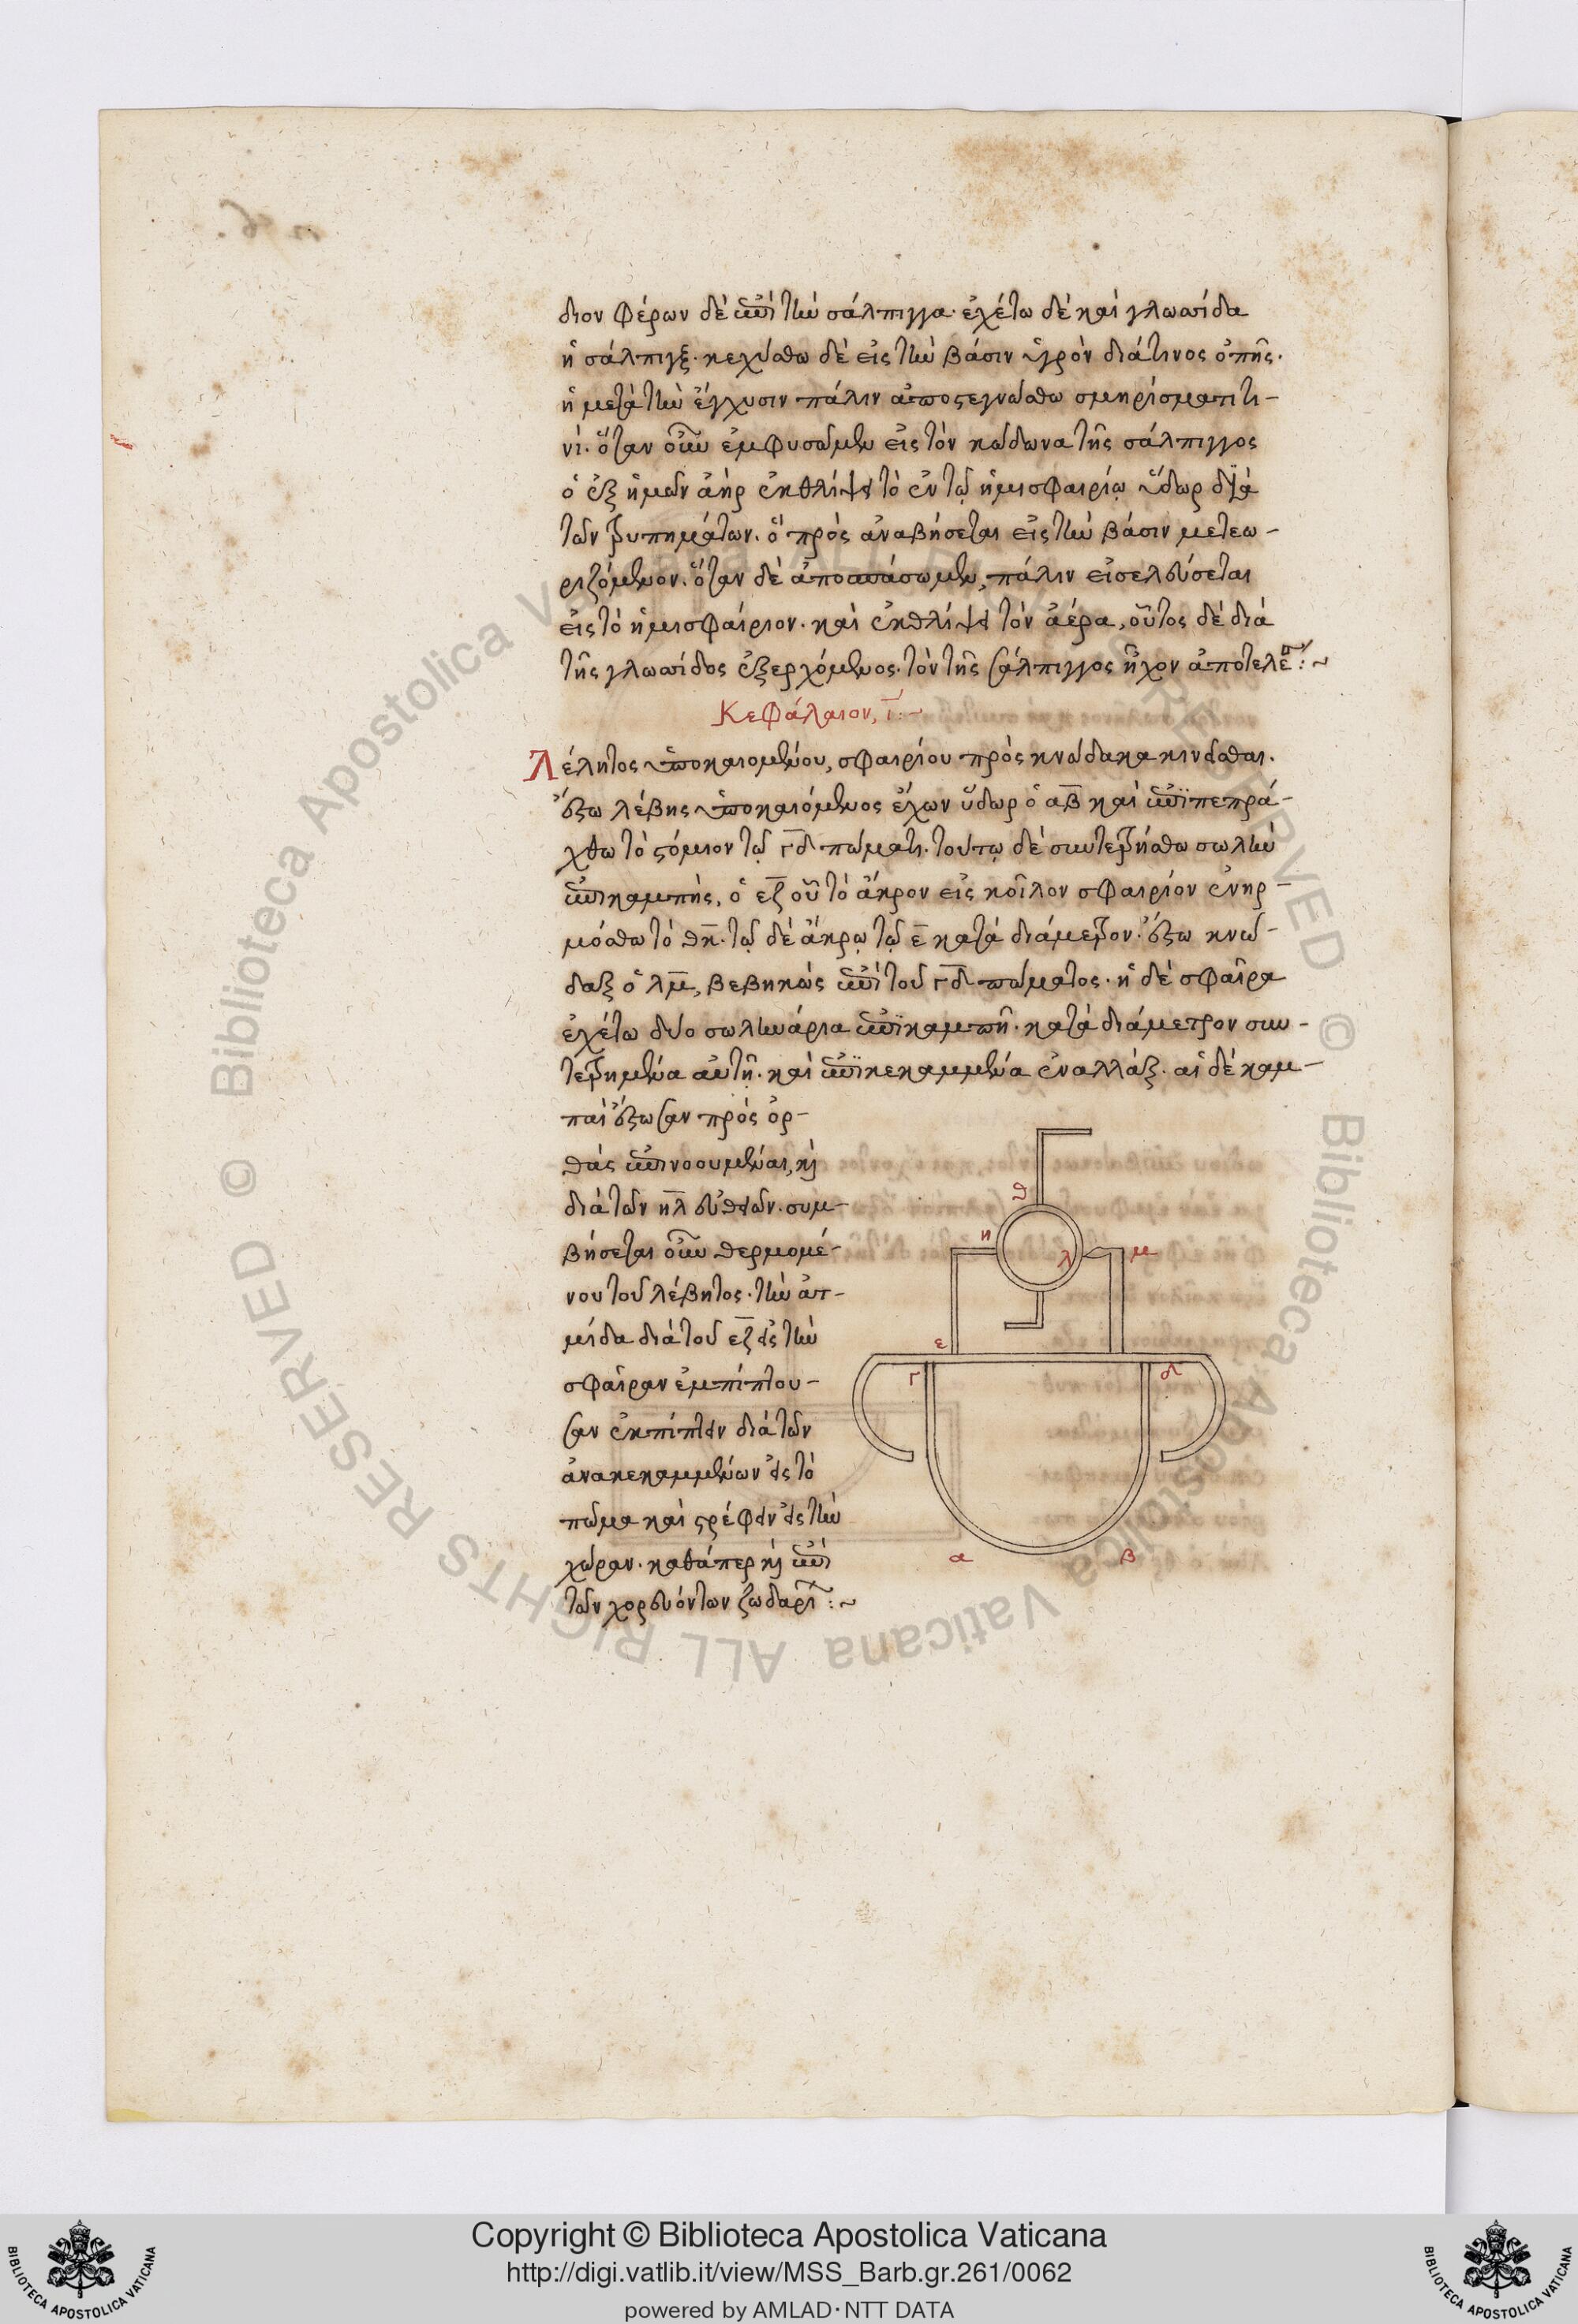 διον φέρων δὲ ἐπὶ τὴν σάλπιγγα· ἐχέτω δὲ καὶ γλωσσίδα
ἡ σάλπιγξ· κεχύσθω δὲ εἰς τὴν βάσιν ὑγρὸν διά τινος ὀπῆς·
ἡ μετὰ τὴν ἔγχυσιν πάλιν ἀποστεγνώσθω σμηρίσματι τι-
νὶ· ὅταν οὖν ἐμφυσῶμεν εἰς τὸν κώδωνα τῆς σάλπιγγος
ὁ ἐξ ἡμῶν ἀὴρ ἐκθλίψει τὸ ἐν τῷ ἡμισφαιρίῳ ὕδωρ διὰ
τῶν τρυπημάτων· ὃ πρὸς ἀναβήσεται εἰς τὴν βάσιν μετεω-
ριζόμενον· ὅταν δὲ ἀποσπάσωμεν, πάλιν εἰσελεύσεται
εἰς τὸ ἡμισφαίριον· καὶ ἐκθλίψει τὸν ἀέρα, οὗτος δὲ διὰ
τῆς γλωσσίδος ἐξερχόμενος· τὸν τῆς σάλπιγγος ἦχον ἀποτελέσ:~
Κεφάλαιον, ι:~
Λέλητος ὑποκαιομένου, σφαιρίου πρὸς κνώδακα κινεῖσθαι·
ἔστω λέβης ὑποκαιόμενος ἔχων ὕδωρ ὁ αβ καὶ ἐπιπεπρά-
χθω τὸ στόμιον τῷ γδ πώματι· τούτῳ δὲ συντετρήσθω σωλὴν
ἐπικαμπής, ὁ εζ οὗ τὸ ἄκρον εἰς κοῖλον σφαιρίον ἐνηρ-
μόσθω τὸ θκ· τῷ δὲ ἄκρῳ τῷ ε κατὰ διάμετρον· ἔστω κνώ-
δαξ ὁ λμ, βεβηκὼς ἐπὶ τοῦ γδ πώματος· ἡ δὲ σφαῖρα
ἐχέτω δύο σωληνάρια ἐπικαμπῆ· κατὰ διάμετρον συν-
τετρημένα αὐτῇ· καὶ ἐπικεκαμμένα ἐναλλάξ· αἱ δὲ καμ-
παὶ ἔστωσαν πρὸς ὀρ-
θὰς ἐπινοουμέναι, καὶ
διὰ τῶν κλ εὐθειῶν· συμ-
βήσεται οὖν θερμομέ-
νου τοῦ λέβητος· τὴν ἀτ-
μίδα διὰ τοῦ εζ εἰς τὴν
σφαῖραν ἐμπίπτου-
σαν ἐκπίπτειν διὰ τῶν
ἀνακεκαμμένων εἰς τὸ
πῶμα καὶ στρέφειν εἰς τὴν
χώραν· καθάπερ καὶ ἐπὶ
τῶν χορευόντων ζωδαρί:~
θ
κ
λ
μ
ε
γ
δ
α
β
© Biblioteca Apostolica Vaticana ALL RIGHTS RESERVED
Copyright © Biblioteca Apostolica Vaticana
http://digi.vatlib.it/view/MSS_Barb.gr.261/0062
powered by AMLAD·NTT DATA
BIBLIOTECA APOSTOLICA VATICANA
BIBLIOTECA APOSTOLICA VATICANA